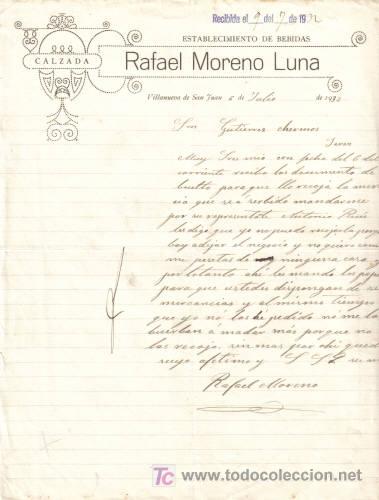 Recibida el 9 del 7 de 1932
ESTABLECIMIENTO DE BEBIDAS
CALZADA
Rafael Moreno Luna
Villanueva de San Juan 6 de Julio de 1932
Sres Gutierres hermos
Muy Sres mio con fecha del 6 del
corriente recibo los documentos de
buelta para que llo recoja la mer
cia que se a serbido mandarme
por su representte Antonio Ruis
les digo que yo no puedo recojerla porque
boy adejar el negocio y no quiero
me pesetas de ninguna casa
por lo tanto ahi les mando los pape
para que ustedes dispongan de
mercancias y al mismo tiempo
que yo no los he pedido no me
buerban á madar más porque no
las recojo, sin mas por ahi qued
suyo afetimo y S S
Rafael Moreno
TC
todocoleccion.net
www.todocoleccion.net